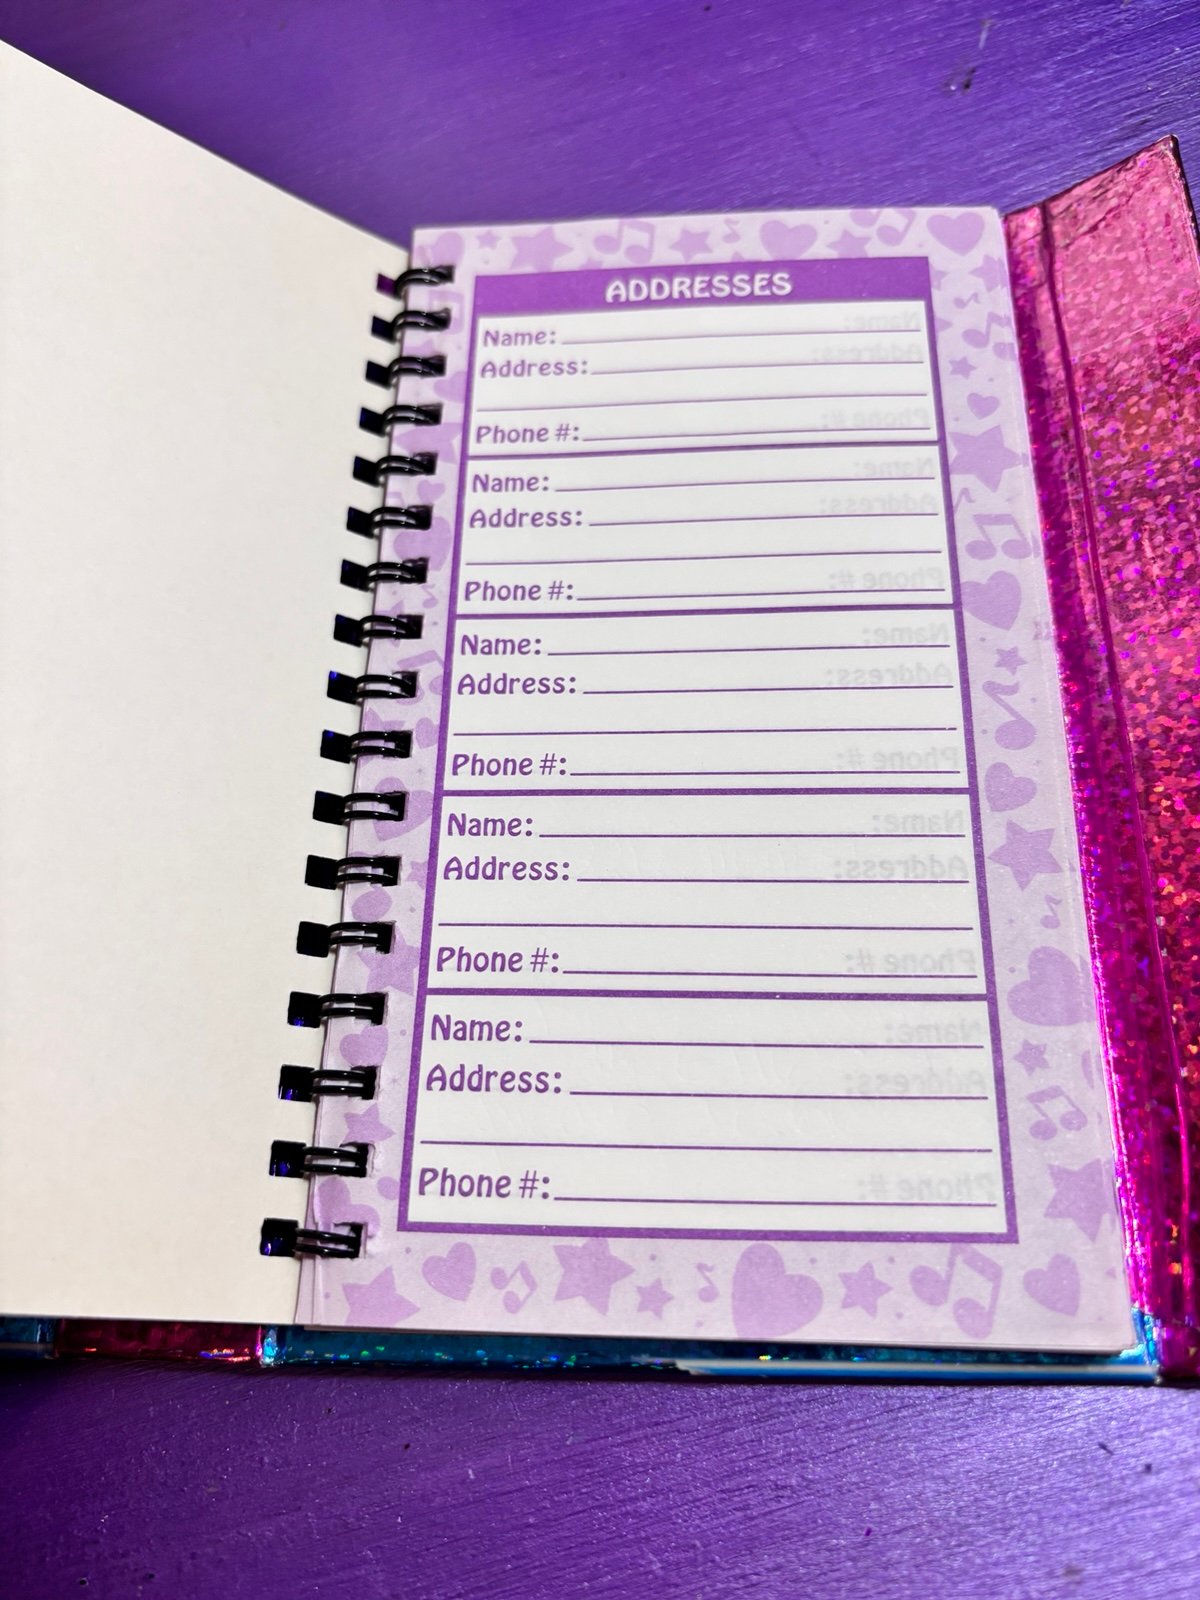 ADDRESSES
Name:
Address:
Phone #:
Name:
Address:
Phone #:
Name:
Address:
Phone #:
Name:
Address:
Phone #:
Name:
Address:
Phone #: